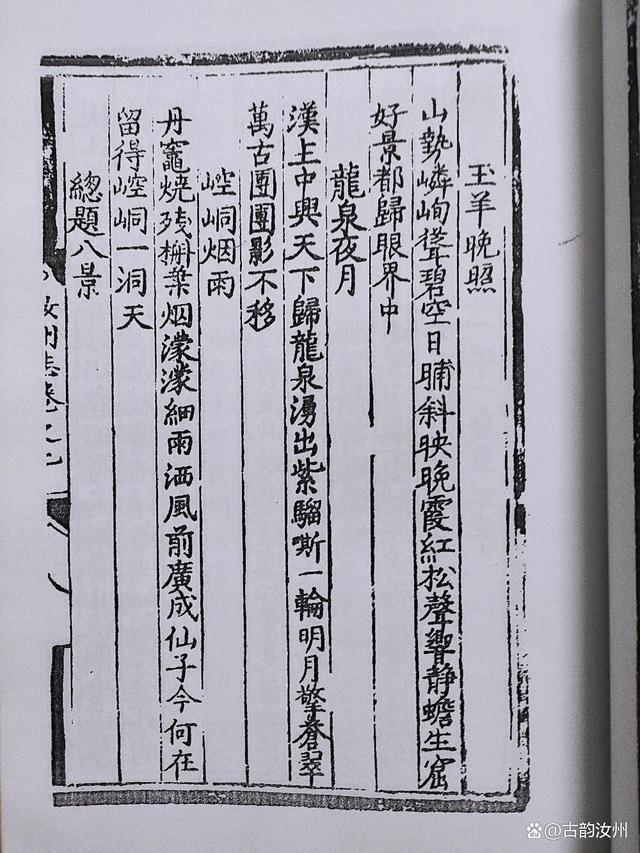 玉羊晚照
山勢嶙峋聳碧空日晡斜映晚霞紅松聲響静蟾生窟
好景都歸眼界中
龍泉夜月
漢上中興天下歸龍泉湧出紫騮嘶一輪明月擎蒼翠
萬古團團影不移
崆峒烟雨
丹竈燒残槲葉烟濛濛細雨洒風前廣成仙子今何在
留得崆峒一洞天
總題八景
汝州志卷之
@古韵汝州